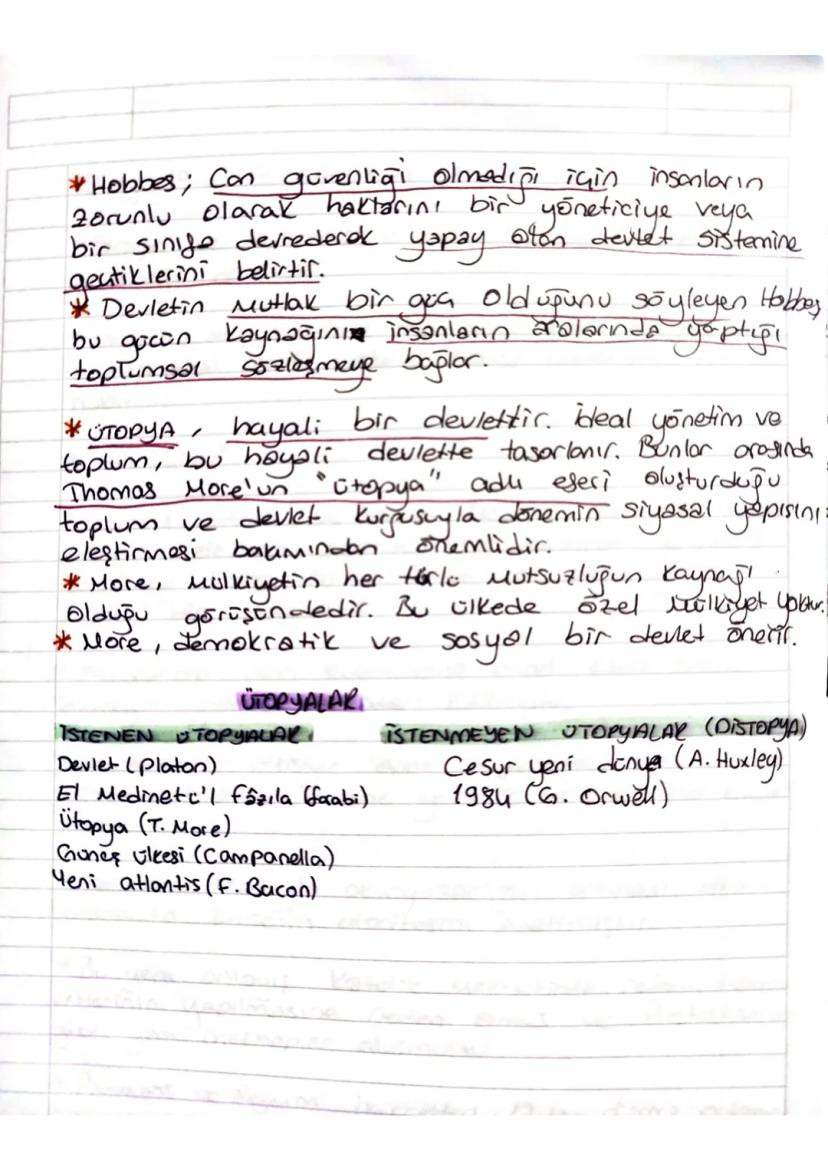 * Hobbes; Can güvenliği olmadığı için insanların
zorunlu olarak haklarını bir yöneticiye veya
bir sınıfa devrederek yapay olan devlet sistemine
geçtiklerini belirtir.
* Devletin mutlak bir güç olduğunu söyleyen Hobbes,
bu gücün kaynağını insanların aralarında yaptığı
toplumsal sözleşmeye bağlar.
* ÜTOPYA, hayali bir devlettir. İdeal yönetim ve
toplum, bu hayali devlette tasarlanır. Bunlar arasında
Thomas More'un "ütopya" adlı eseri oluşturduğu
toplum ve devlet kurgusuyla dönemin siyasal yapısını
eleştirmesi bakımından önemlidir.
* More, mülkiyetin her türlü mutsuzluğun kaynağı
olduğu görüşündedir. Bu ülkede özel mülkiyet yoktur.
* More, demokratik ve sosyal bir devlet önerir.
ÜTOPYALAR
İSTENEN ÜTOPYALAR
Devlet (Platon)
El Medinetü'l fâzıla (farabi)
Ütopya (T. More)
Güneş ülkesi (Campanella)
Yeni atlantis (F. Bacon)
İSTENMEYEN ÜTOPYALAR (DİSTOPYA)
Cesur yeni dünya (A. Huxley)
1984 (G. Orwell)